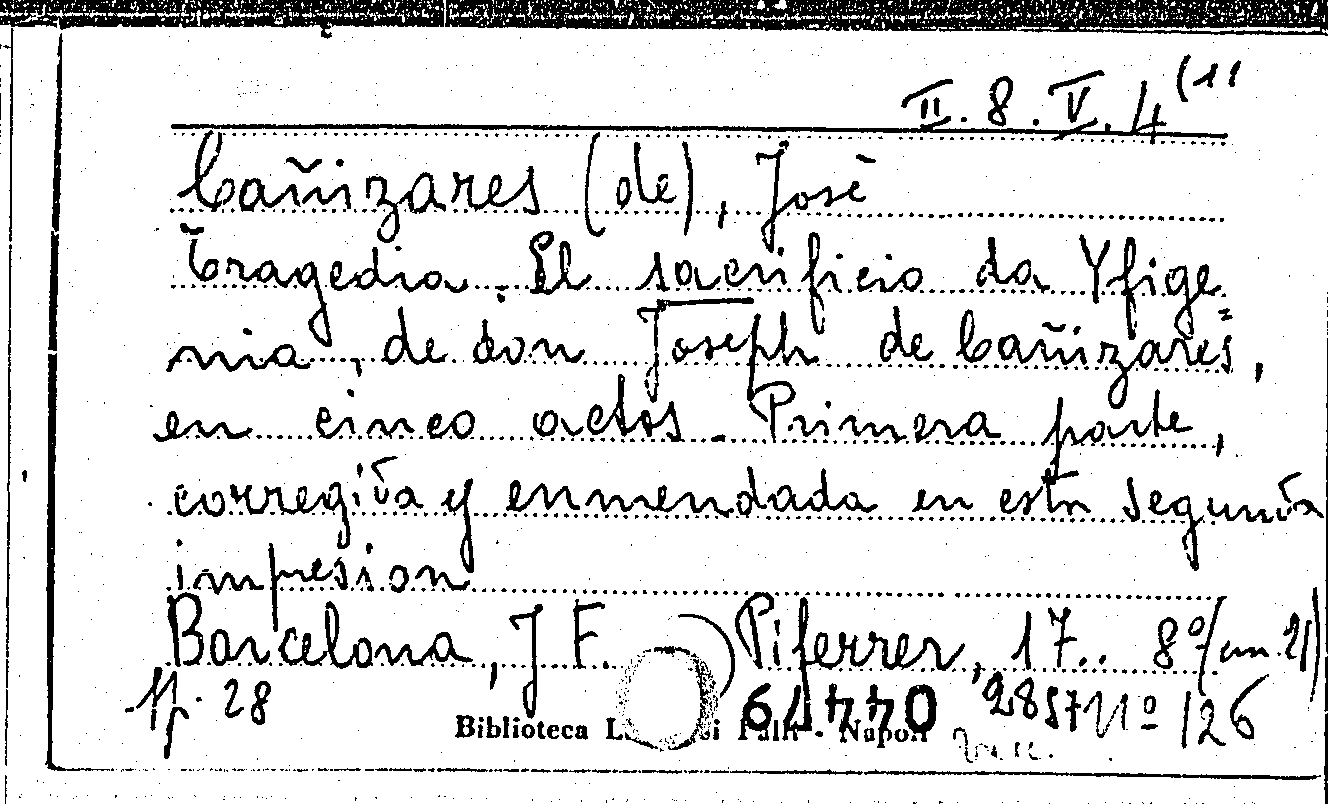 II. 8. V. 4 (11
Cañizares (de), José
Tragedia. El sacrificio da Yfige=
nia, de don Joseph de Cañizares,
en cinco actos. Primera parte,
corregida y enmendada en esta segunda
impresion
Barcelona, J F. Piferrer, 17.. 8º (cm 21)
p. 28 044479 Nº 126
Biblioteca - Napoli